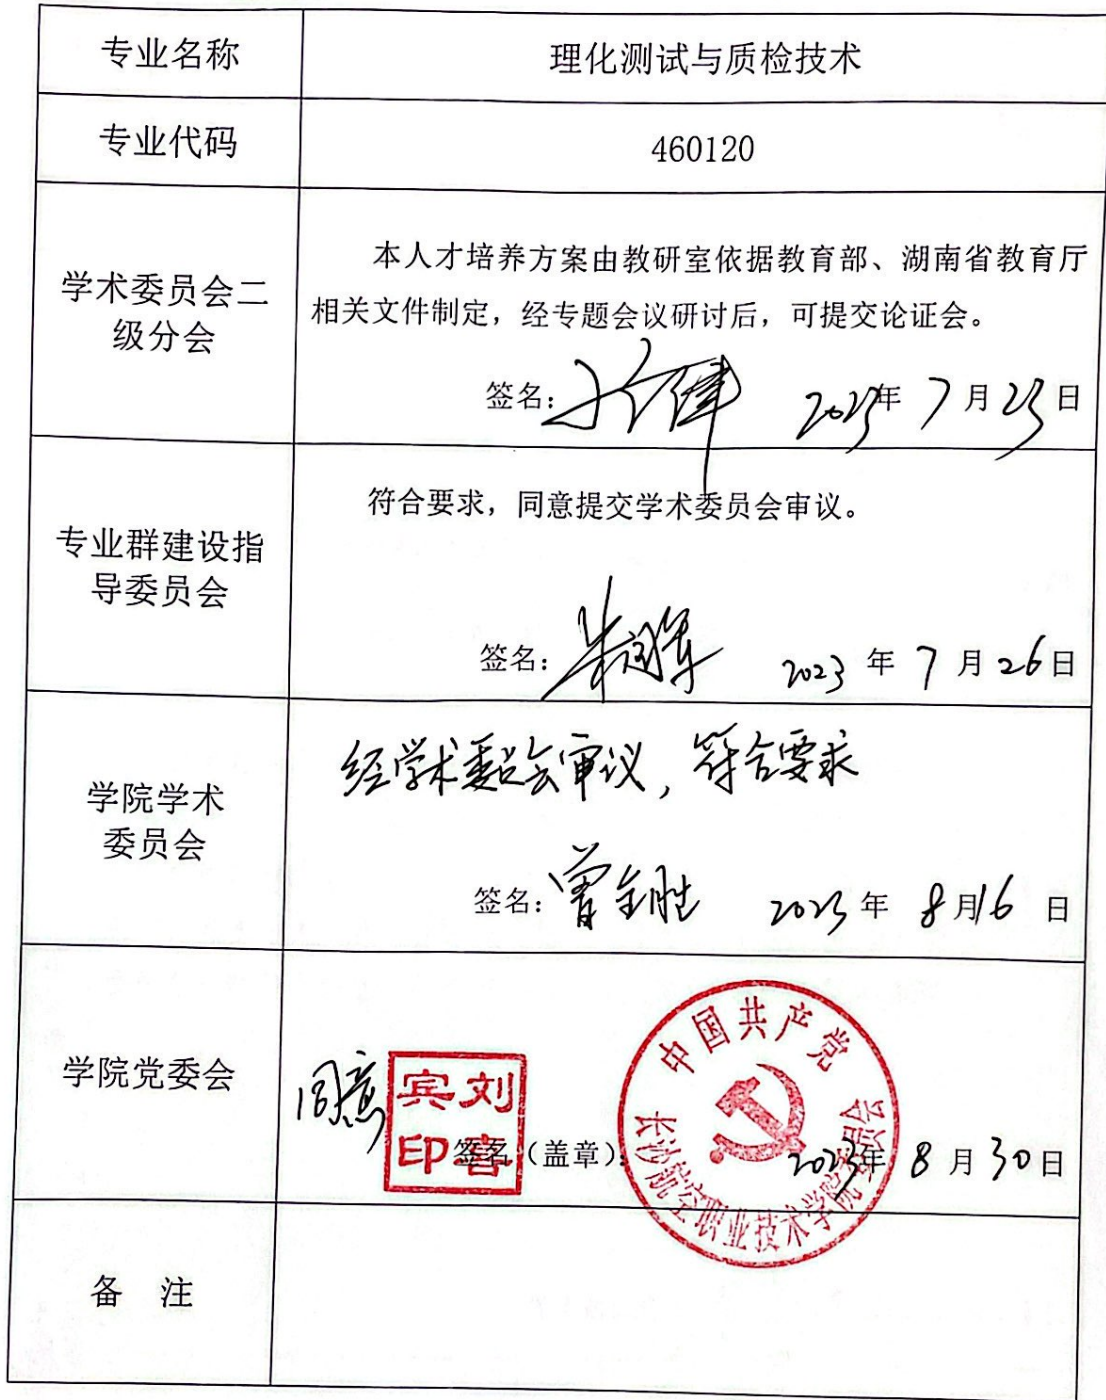 专业名称
理化测试与质检技术
专业代码
460120
学术委员会二
级分会
本人才培养方案由教研室依据教育部、湖南省教育厅
相关文件制定，经专题会议研讨后，可提交论证会。
签名： 2023年 7 月 25 日
专业群建设指
导委员会
符合要求，同意提交学术委员会审议。
签名： 2023 年 7 月 26 日
学院学术
委员会
经学术委员会审议，符合要求
签名：曾全胜 2023 年 8 月 16 日
学院党委会
同意
刘喜宾印
签名（盖章）： 2023年 8 月 30 日
中国共产党
长沙航空职业技术学院委员会
备 注